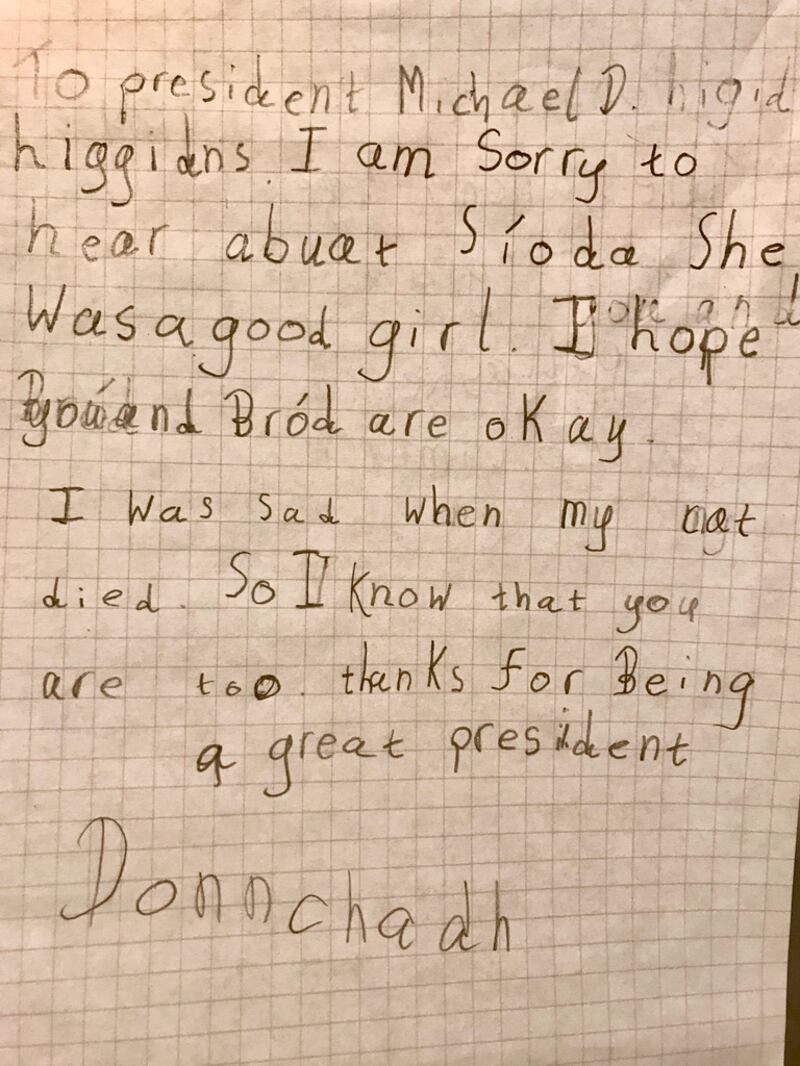 To president Michael D. higid
higgidns. I am Sorry to
hear abuat Síoda She
Was a good girl. I hope
you and Bród are oKay.
I Was sad when my cat
died. So I Know that you
are too. thanKs for Being
a great president
Donnchadh